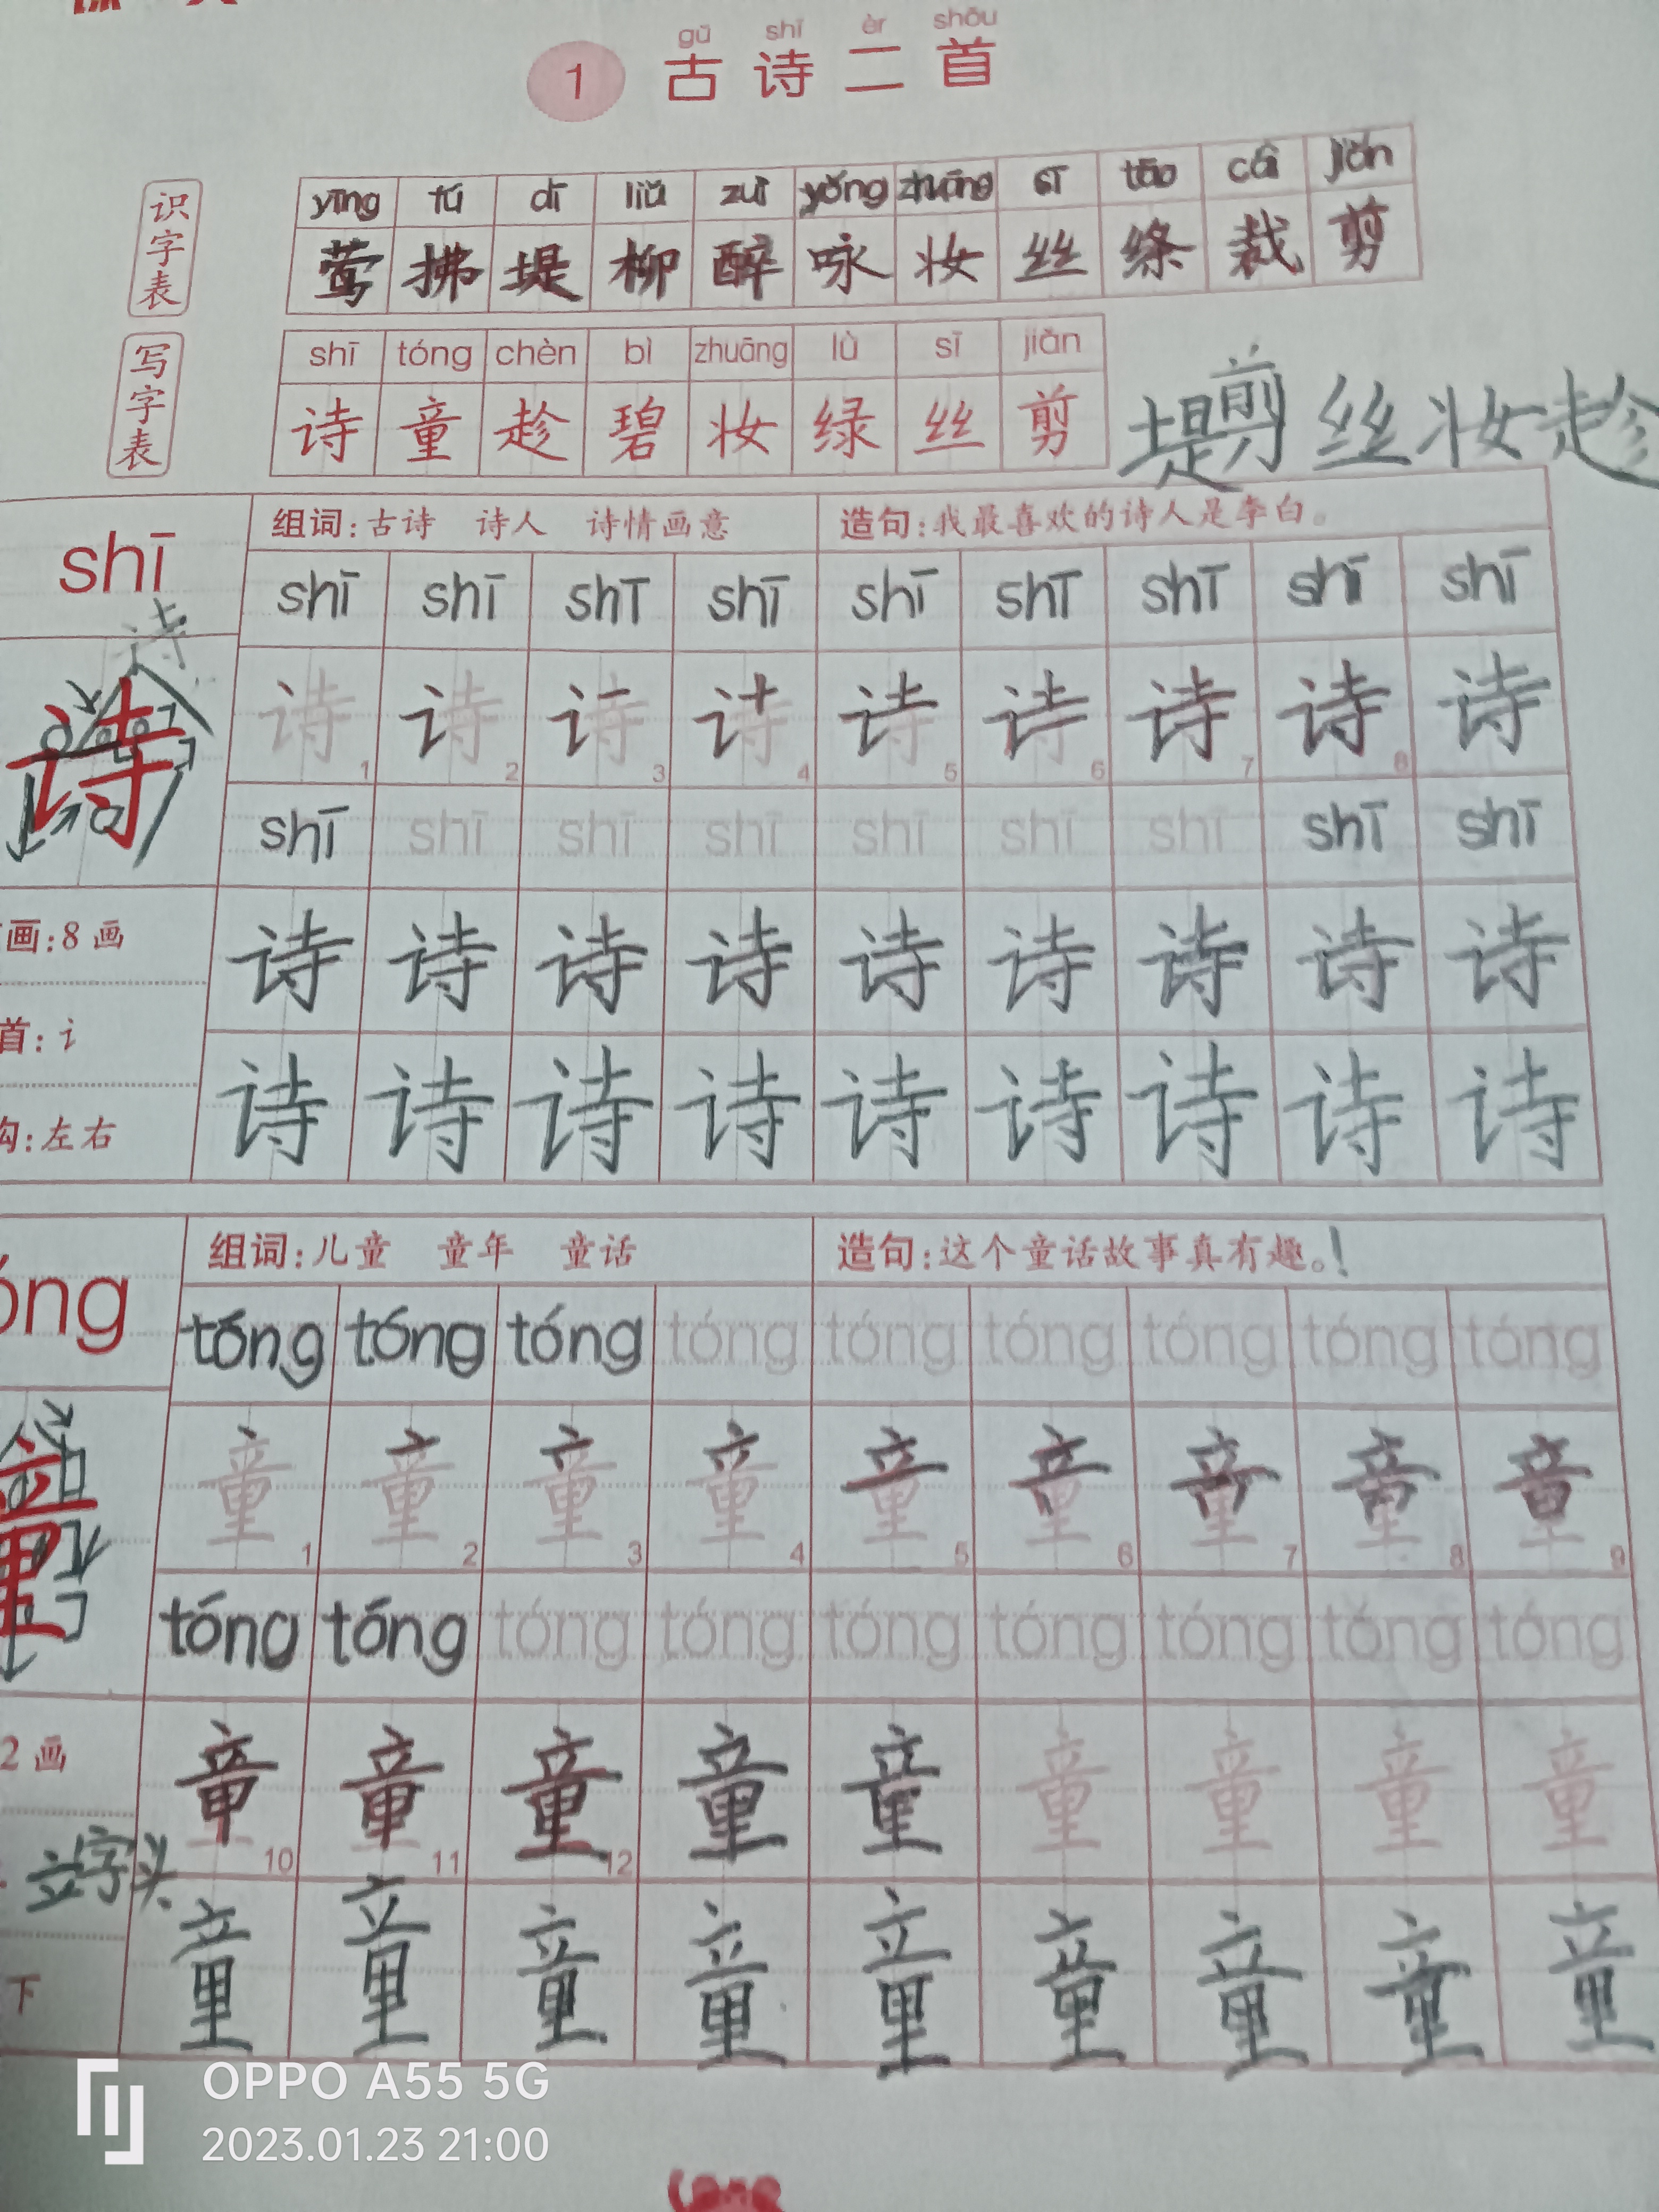 gǔ shī èr shǒu
1 古诗二首
识字表
yīng fú dī liǔ zuì yǒng zhuāng sī tāo cái jiǎn
莺 拂 堤 柳 醉 咏 妆 丝 绦 裁 剪
写字表
shī tóng chèn bì zhuāng lǜ sī jiǎn
诗 童 趁 碧 妆 绿 丝 剪
堤 剪 丝 妆 趁
shī
组词:古诗 诗人 诗情画意 造句:我最喜欢的诗人是李白。
shī shī shī shī shī shī shī shī shī
诗
诗
诗 诗 诗 诗 诗 诗 诗 诗 诗
1 2 3 4 5 6 7 8
shī shī shī shī shī shī shī shī shī
画:8画
诗 诗 诗 诗 诗 诗 诗 诗 诗
首:讠
诗 诗 诗 诗 诗 诗 诗 诗 诗
构:左右
óng
组词:儿童 童年 童话 造句:这个童话故事真有趣。!
tóng tóng tóng tóng tóng tóng tóng tóng tóng
童
童 童 童 童 童 童 童 童 童
1 2 3 4 5 6 7 8 9
tóng tóng tóng tóng tóng tóng tóng tóng tóng
2画
童 童 童 童 童 童 童 童 童
10 11 12
立字头
童 童 童 童 童 童 童 童 童
下
OPPO A55 5G
2023.01.23 21:00